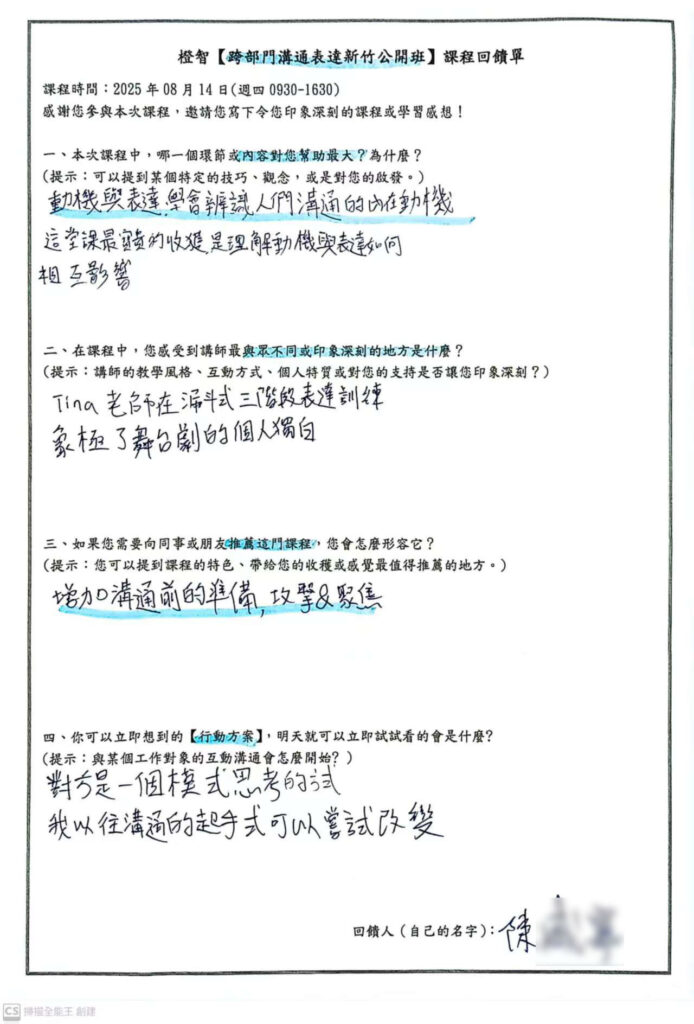 橙智【跨部門溝通表達新竹公開班】課程回饋單
課程時間：2025 年 08 月 14 日(週四 0930-1630)
感謝您參與本次課程，邀請您寫下令您印象深刻的課程或學習感想！
一、本次課程中，哪一個環節或內容對您幫助最大？為什麼？
(提示：可以提到某個特定的技巧、觀念，或是對您的啟發。)
動機與表達，學會辨識人們溝通的內在動機
這堂課最寶貴的收獲，是理解動機與表達如何
相互影響
二、在課程中，您感受到講師最與眾不同或印象深刻的地方是什麼？
(提示：講師的教學風格、互動方式、個人特質或對您的支持是否讓您印象深刻？)
Tina 老師在漏斗式三階段表達訓練
象極了舞台劇的個人獨白
三、如果您需要向同事或朋友推薦這門課程，您會怎麼形容它？
(提示：您可以提到課程的特色、帶給您的收穫或感覺最值得推薦的地方。)
增加溝通前的準備，攻擊&聚焦
四、你可以立即想到的【行動方案】，明天就可以立即試試看的會是什麼？
(提示：與某個工作對象的互動溝通會怎麼開始？)
對方是一個模式思考的
我以往溝通的起手式可以嘗試改變
回饋人（自己的名字）：陳
CS 掃描全能王 創建